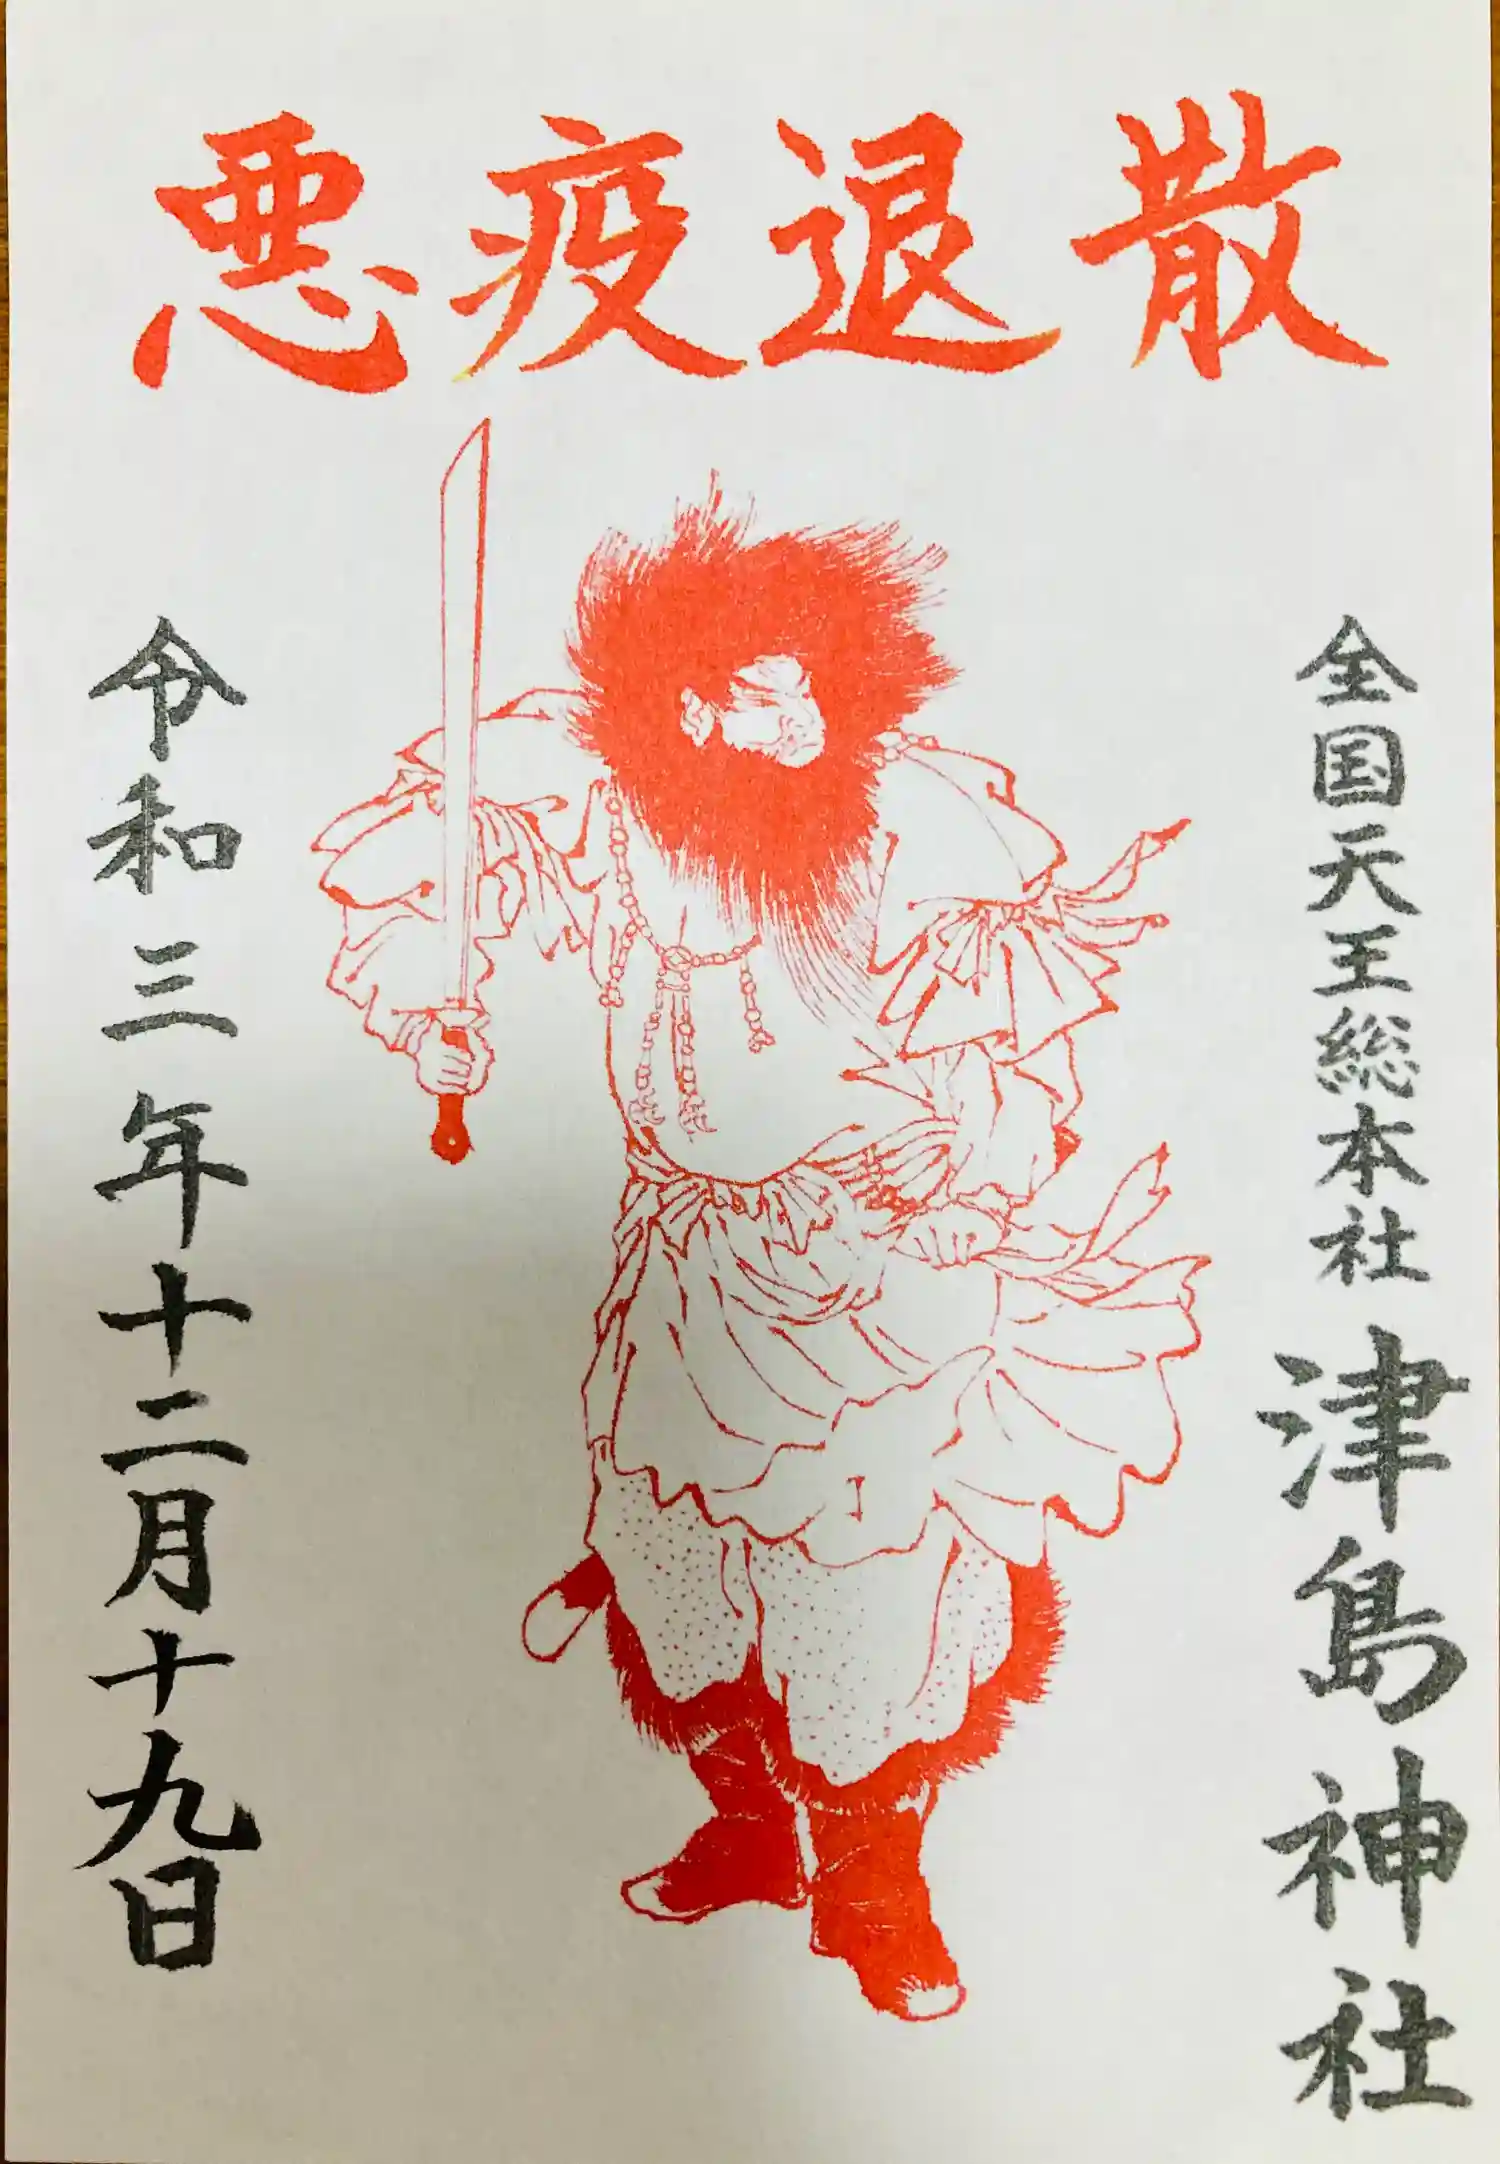 悪疫退散
全国天王総本社 津島神社
令和三年十二月十九日